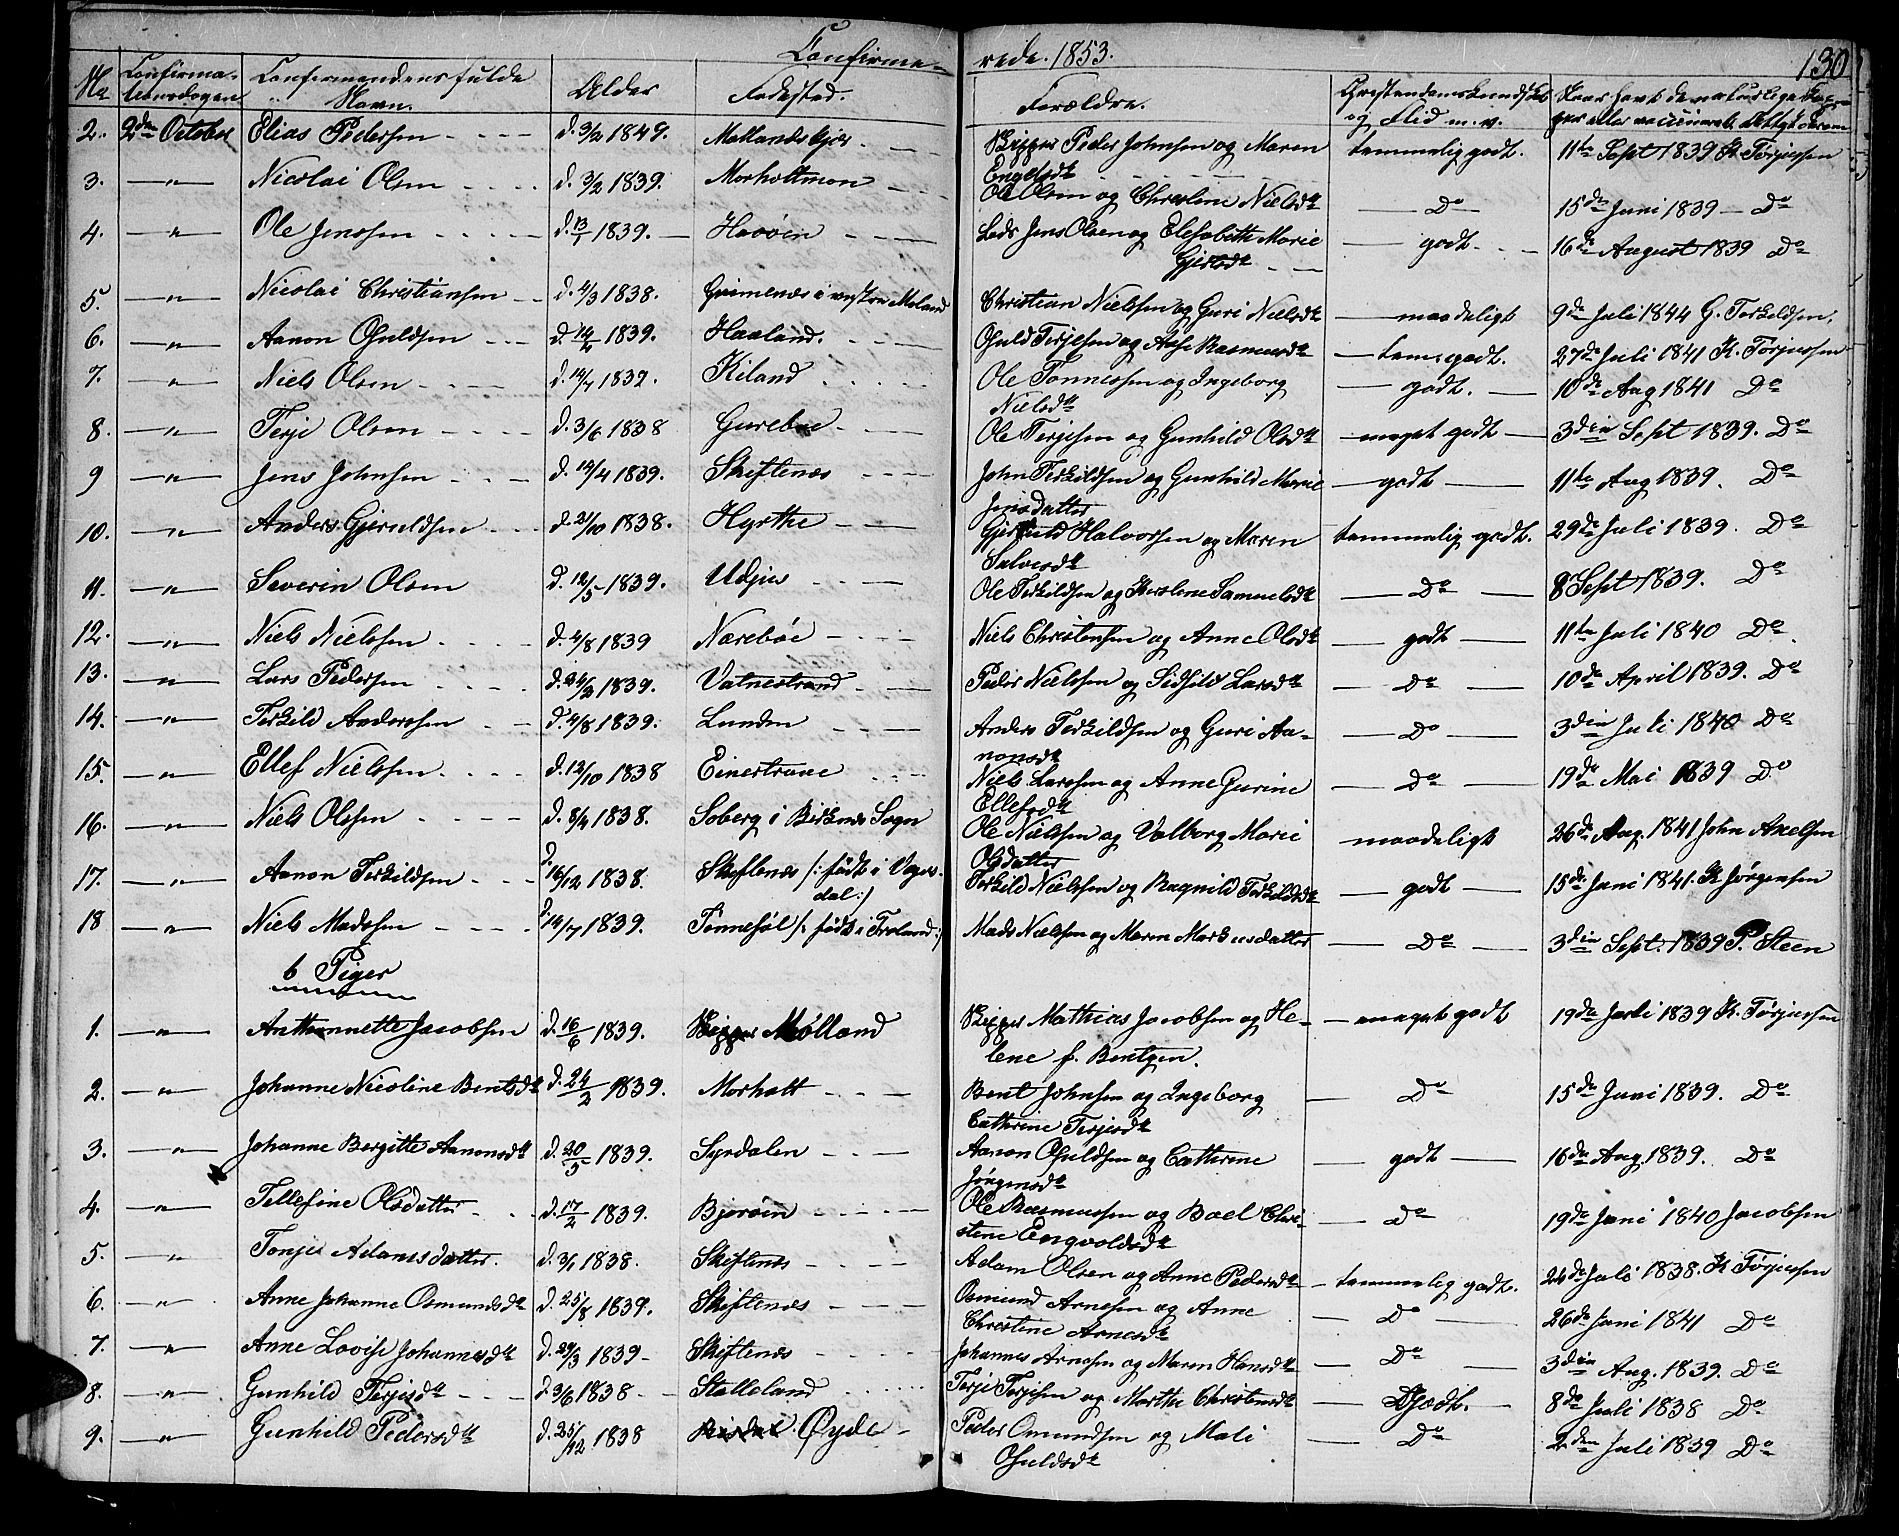 Confirme- rede. 1853. 130
No Confirma- Confirmandens fulde Alder Fødested. Forældre. Christendomskundskab
tionsdagen Navn. og Flid m. v.
2. 2den October Elias Pedersen d. 3/2 1849. Mollandskjær Skipper Peder Johnsen og Maren Engelsdt tammelig godt. 11te Sept 1839 K. Tørjusen
3. —"— Nicolai Olsen d. 3/2 1839. Morholtmon Ole Olsen og Christine Nielsdt Do 15de Juni 1839 Do
4. —"— Ole Jenssen d. 13/1 1839. Haaøen Lods Jens Olsen og Elisabeth Marie Gjertsdt godt. 16de August 1839 Do
5. —"— Nicolai Christiansen d. 4/3 1838. Grimenæs i vestre Moland Christian Nielsen og Guri Nielsdt maadeligt 9de Juli 1844 G. Torkildsen.
6. —"— Aanon Ofuldsen d. 14/4 1839. Haaland. Ofuld Terjesen og Aase Rasmusdt tam. godt. 27de Juli 1841 K. Tørjusen
7. —"— Niels Olsen d. 14/7 1839. Kiland Ole Tønnessen og Ingeborg Nielsdt godt. 10de Aug 1841 Do
8. —"— Terje Olsen d. 3/6 1838 Gurebøe Ole Terjesen og Gunhild Olsdt meget godt 3die Sept 1839. Do
9 —"— Jens Johnsen d. 14/4 1839. Skiftenæs John Terkildsen og Gunhild Marie Jensdatter godt 11te Aug 1839. Do
10. —"— Anders Gjeruldsen d. 21/10 1838. Hyrthe Gjeruld Halvorsen og Maren Salvesdt tammelig godt. 29de Juli 1839. Do
11. —"— Severin Olsen d. 12/5 1839. Udjus Ole Terkildsen og Kirstene Samuelsdt Do 8 Sept 1839. Do
12. —"— Niels Nielsen d. 4/8 1839 Nærebøe Niels Christensen og Anne Olsdt godt 11te Juli 1840 Do
13. —"— Lars Pedersen d. 24/2 1839. Vatnestrand Peder Nielsen og Sidsild Larsdt Do 10de April 1839. Do
14. —"— Terkild Andersen d. 4/8 1839. Lunden Anders Terkildsen og Guri Aanonsdt Do 3die Juli 1840 Do
15. —"— Ellef Nielsen d. 12/10 1838 Einestrane Niels Larsen og Anne Gurine Ellefsdt Do 19de Mai 1839 Do
16. —"— Niels Olsen d. 8/4 1838. Soberg i Birkenæs Sogn Ole Nielsen og Valborg Marie Olsdatter maadeligt 26de Aug. 1841 John Axelsen
17. —"— Aanon Terkildsen d. 16/12 1838. Skiftenæs /: født i Vegusdal:/ Terkild Nielsen og Ragnild Terkildsdt godt 15de Juni 1841. K Jørgensen
18 —"— Niels Madsen d. 14/7 1839. Tønnesøl /: født i Froland :/ Mads Nielsen og Maren Markusdatter Do 3die Sept. 1839 P. Steen
b Piger
1. —"— Anthonnette Jacobsen d. 16/6 1839. Molland Skipper Mathias Jacobsen og Helene f. Bentzen. meget godt 19de Juli 1839 K. Tørjusen
2. —"— Johanne Nicoline Bentsdt d. 24/2 1839. Morholt Bent Johnsen og Ingeborg Cathrine Terjesdt Do 15de Juni 1839. Do
3. —"— Johanne Bergitte Aanonsdt d. 20/5 1839. Syrdalen Aanon Ofuldsen og Cathrine Jørgensdt godt 16de Aug. 1839. Do
4. —"— Tellefine Olsdatter d. 17/2 1839. Bjorøin Ole Rasmussen og Boel Christene Engvoldsdt Do 19de Juni 1840 Jacobsen
5. " Tonje Adamsdatter. d. 3/1 1838. Skiftenæs Adam Olsen og Anne Pedersdt tammelig godt. 24de Juli 1838. K Tørjusen
6. —"— Anne Johanne Osmundsdt d. 25/8 1839. Skiftenæs Osmund Arnesen og Anne Christine Arnesdt Do 26de Juni 1841 Do
7. —"— Anne Lovise Johannesdt d. 29/3 1839 Skiftenæs Johannes Arnesen og Maren Hansdt Do 3die Aug. 1839. Do
8. —"— Gunhild Terjesdt d. 3/6 1838 Stalleland Terje Terjesen og Marthe Christensdt Godt. 8de Juli 1838 Do
9. —"— Gunhild Pedersdt d. 25/12 1838 Øyde Peder Omundsen og Mali Ofuldsdt Do 2den Juli 1839 Do